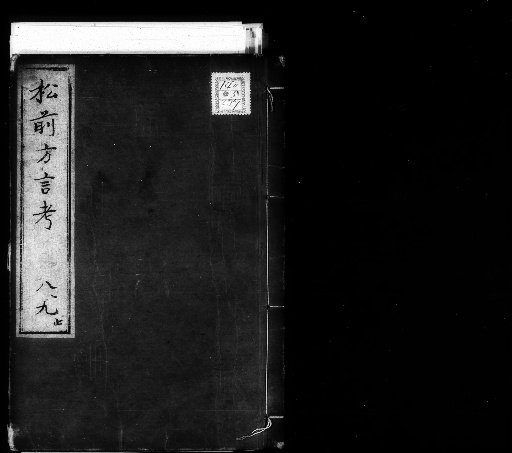 松前方言考 八、九 止